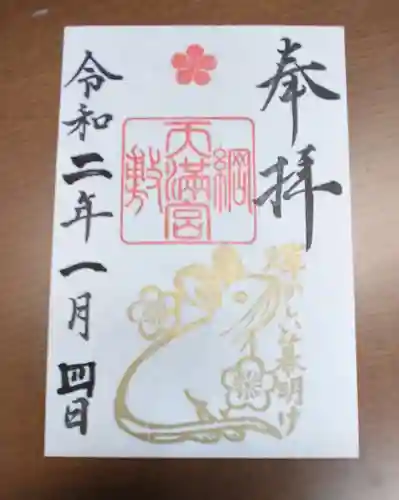 奉拝
綱敷天満宮
輝かしい幕明け
令和二年一月四日